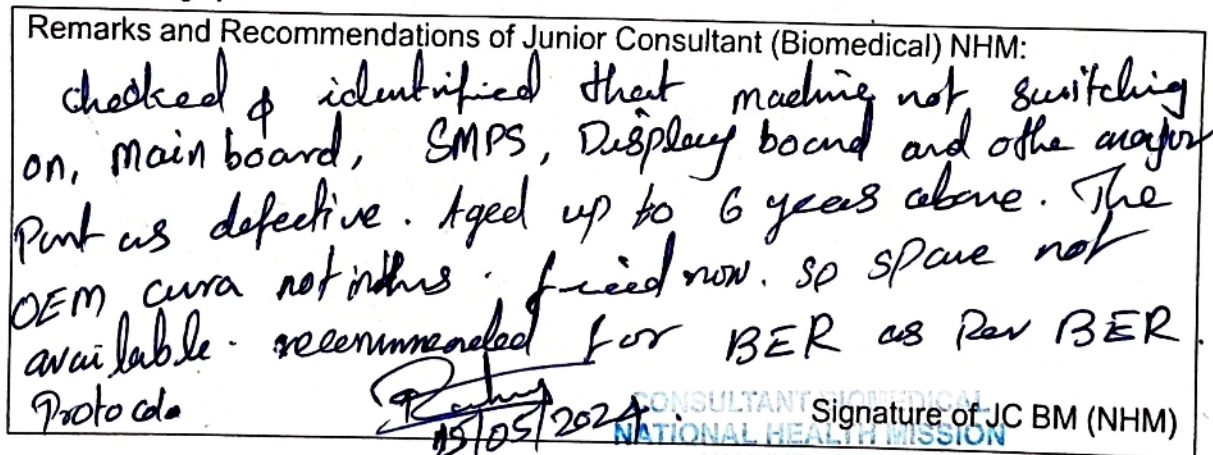 Remarks and Recommendations of Junior Consultant (Biomedical) NHM:
checked & identified that machine not switching
on, Main board, SMPS, Display board and othe major
Part as defective. Aged up to 6 years above. The
OEM cura not in this fieed now. so spare not
available. recommended for BER as Per BER.
Protocols
15/05/2024
CONSULTANT BIOMEDICAL
NATIONAL HEALTH MISSION
Signature of JC BM (NHM)